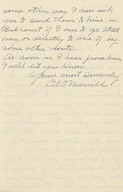 some other way I can ask
you to send them to him in
Bukharest if I am to go that
way or directly to me if by
some other route.
As soon as I hear from him
I will let you know.
Yours most sincerely,
C. B. Merrill